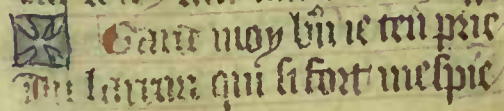 Gart moy bn̄ ie ten prie
Du larron qui si fort mespie